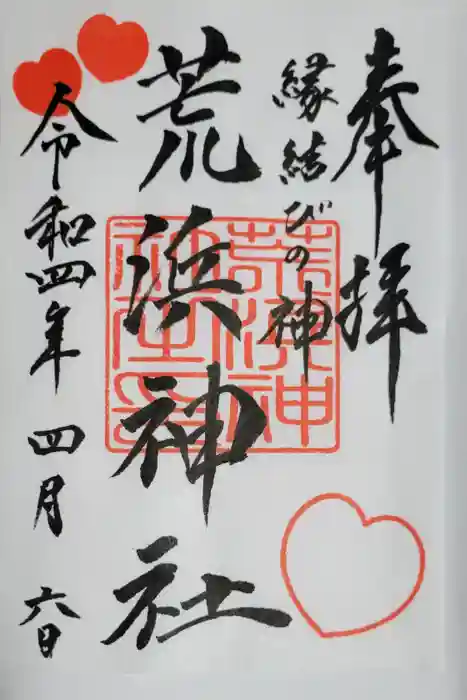 奉拝
縁結びの神
荒浜神社
令和四年四月六日
荒浜神社之印